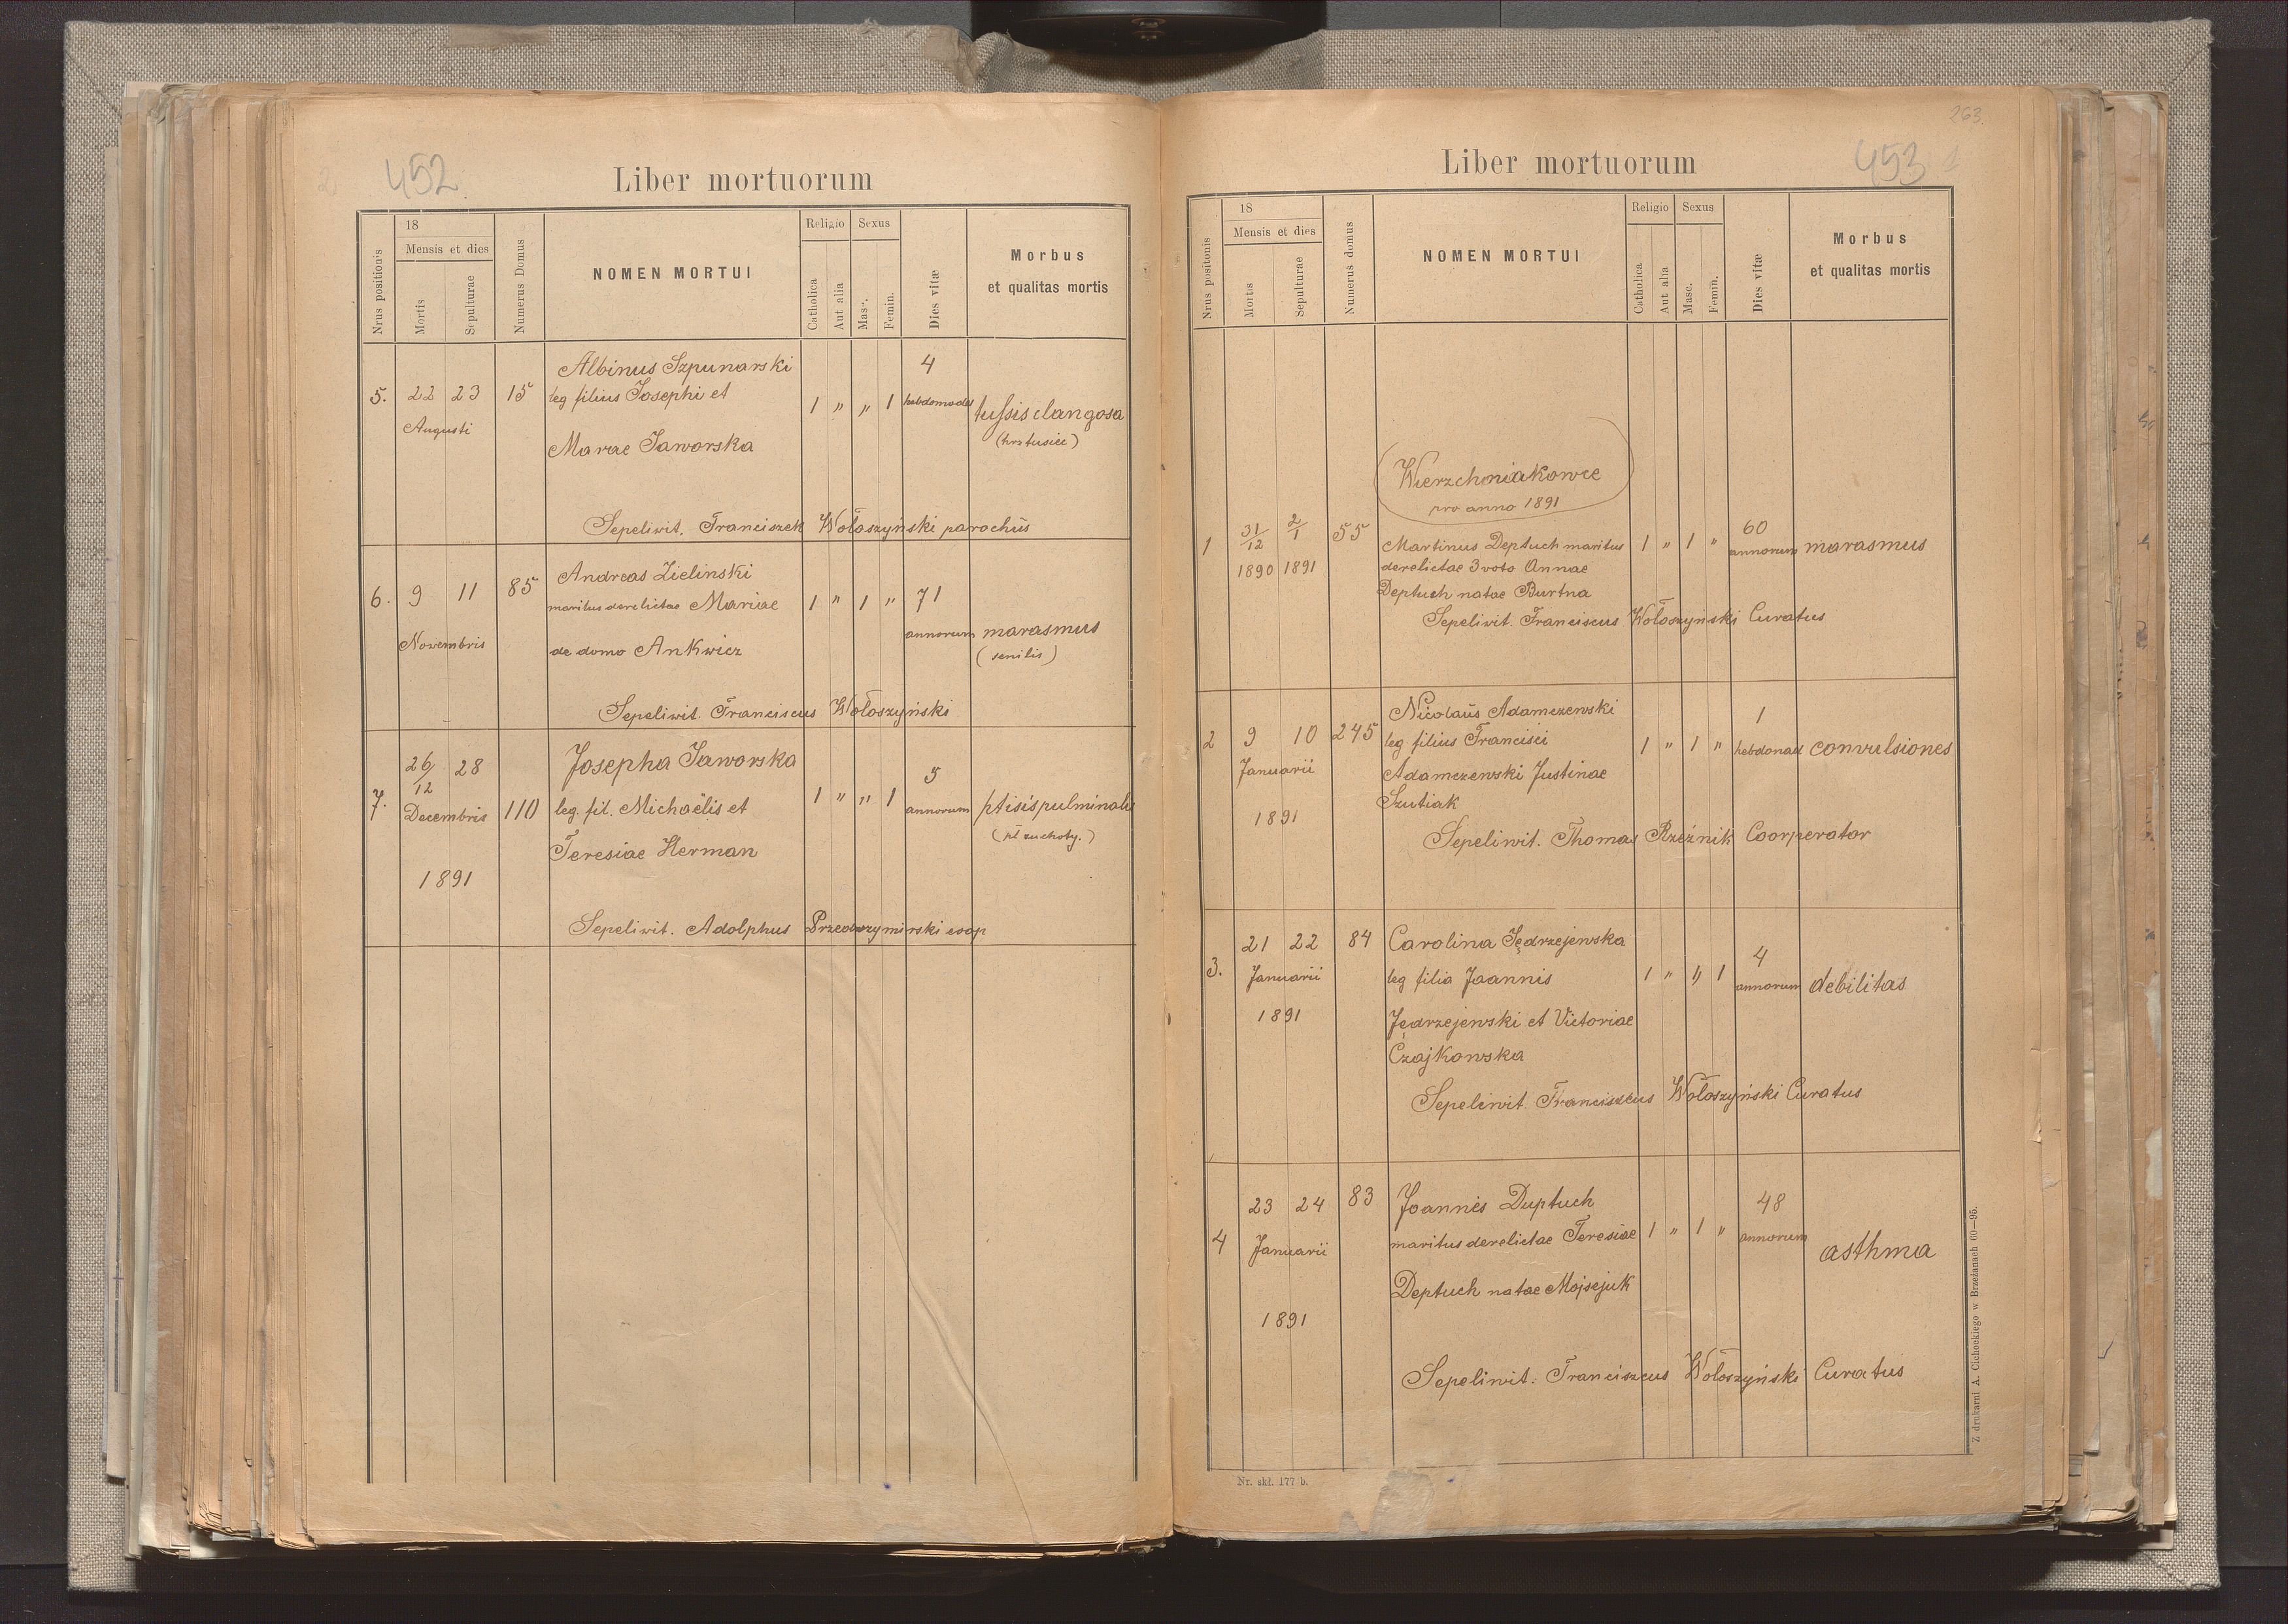 452
Liber mortuorum
Nrus positionis
18
Mensis et dies
Mortis
Sepulturae
Numerus Domus
NOMEN MORTUI
Religio
Catholica
Aut alia
Sexus
Masc.
Femin.
Dies vitæ
Morbus
et qualitas mortis
5. 22 23 15 Albinus Szpunarski 4
Augusti leg filius Josephi et 1 " " 1 hebdomades tussis clangosa
Mariae Jaworska
Sepeliwit. Franciszek Wołoszyński parochus
6. 9 11 85 Andreas Zielinski
maritus derelictae Mariae 1 " 1 " 71
Nowembris annorum marasmus
de domo Ankwicz (senilis)
Sepeliwit. Franciscus Wołoszyński
7. 26/12 28 Josepha Jaworska 5
Decembris 110 leg. fil. Michaëlis et 1 " " 1 annorum ptisis pulminalis
Teresiae Herman
1891
Sepeliwit. Adolphus Przedrzymirski coop
263.
453
Liber mortuorum
Nrus positonis
18
Mensis et dies
Mortis
Sepulturae
Numerus domus
NOMEN MORTUI
Religio
Catholica
Aut alia
Sexus
Masc.
Femin.
Dies vitæ
Morbus
et qualitas mortis
Wierzchniakowce
pro anno 1891
1 31/12 2/1 55 60
Martinus Deptuch maritus 1 " 1 " annorum marasmus
1890 1891 derelictae 3 voto Annae
Deptuch natae Burtna
Sepeliwit. Franciscus Wołoszyński Curatus
Nicolaus Adamczewski 1
2 9 10 245 leg filius Francisci 1 " 1 " hebdonad convulsiones
Januarii Adamczewski Justinae
1891 Szutiak
Sepeliwit. Thomas Rzeźnik Coorperator
3. 21 22 84 Carolina Jędrzejewska 4
Januarii leg filia Joannis 1 " " 1 annorum debilitas
1891 Jędrzejewski et Victoriae
Czajkowska
Sepeliwit. Franciscus Wołoszyński Curatus
23 24 83 Joannes Duptuch 48
4 Januarii maritus derelictae Teresiae 1 " 1 " annorum asthma
Deptuch natae Mojsejuk
1891
Sepeliwit: Franciszcus Wołoszyński Curatus
Nr. skł. 177 b.
Z drukarni A. Cichockiego w Brzeżanach 60—95.